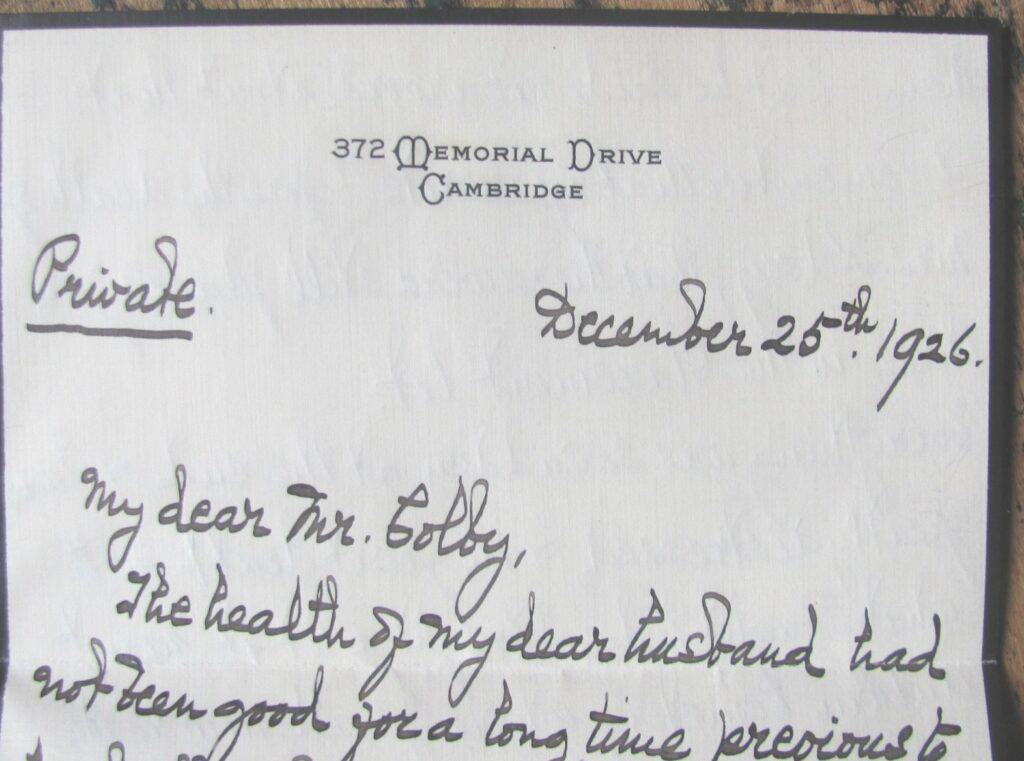 372 MEMORIAL DRIVE
CAMBRIDGE
Private.
December 25th. 1926.
My dear Mr. Colby,
The health of my dear husband had
not been good for a long time previous to